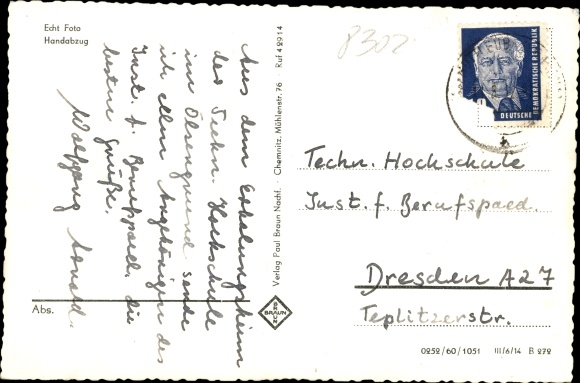 Echt Foto
Handabzug
8302
DEUTSCHE
DEMOKRATISCHE REPUBLIK
Aus dem Erholungsheim
der Techn. Hochschule
im Ölsengrund sende
ich allen Angehörigen des
Inst. f. Berufspäd. die
besten Grüße.
Wolfgang
Verlag Paul Braun Nachf. Chemnitz, Mühlenstr. 76 Ruf 42914
BRAUN
Techn. Hochschule
Inst. f. Berufspaed.
Dresden A27
Teplitzerstr.
Abs.
0252/60/1051 III/6/14 B 272